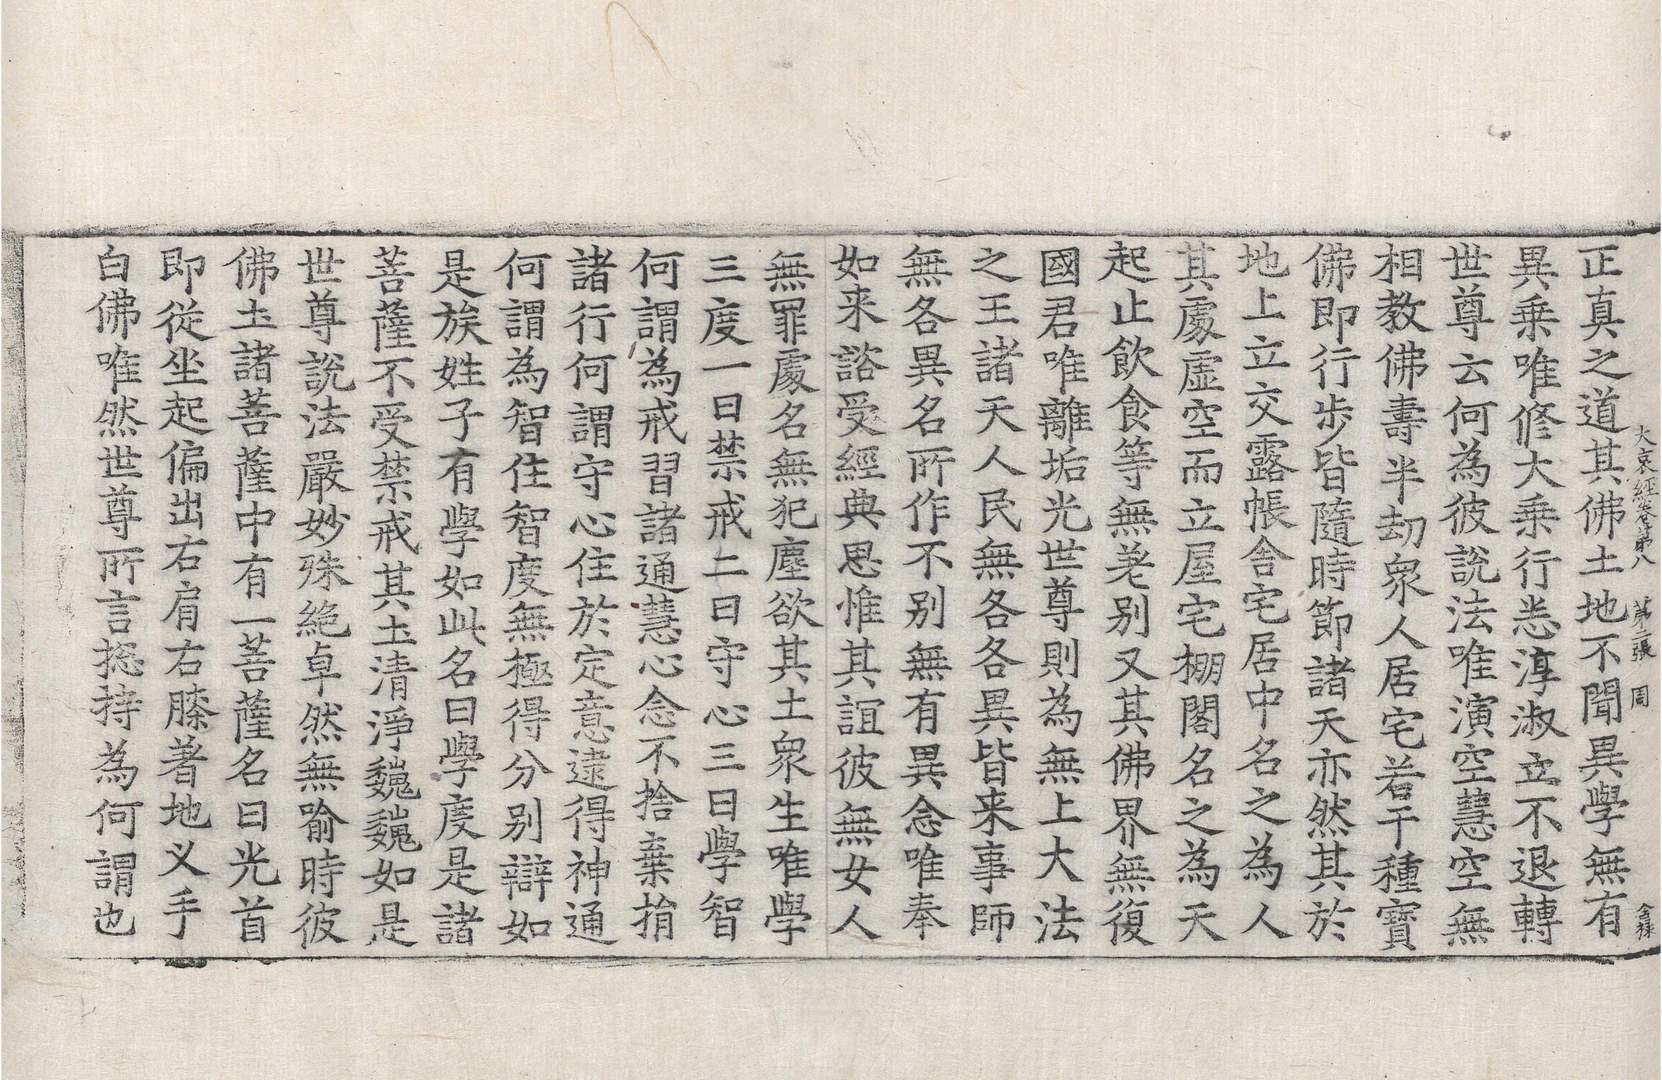 大哀經卷第八　第二張　周
正真之道其佛土地不聞異學無有
異乗唯修大乗行悉淳淑立不退轉
世尊云何為彼說法唯演空慧空無
相教佛壽半劫衆人居宅若干種寶
佛即行步皆隨時節諸天亦然其於
地上立交露帳舍宅居中名之為人
其處虛空而立屋宅棚閣名之為天
起止飲食等無差別又其佛界無復
國君唯離垢光世尊則為無上大法
之王諸天人民無各各異皆来事師
無各異名所作不別無有異念唯奉
如来諮受經典思惟其誼彼無女人
無罪處名無犯塵欲其土衆生唯學
三度一曰禁戒二曰守心三曰學智
何謂為戒習諸通慧心念不捨棄捐
諸行何謂守心住於定意逮得神通
何謂為智住智度無極得分別辯如
是族姓子有學如此名曰學度是諸
菩薩不受禁戒其土清淨巍巍如是
世尊說法嚴妙殊絶卓然無喻時彼
佛土諸菩薩中有一菩薩名曰光首
即從坐起偏出右肩右膝著地叉手
白佛唯然世尊所言捴持為何謂也